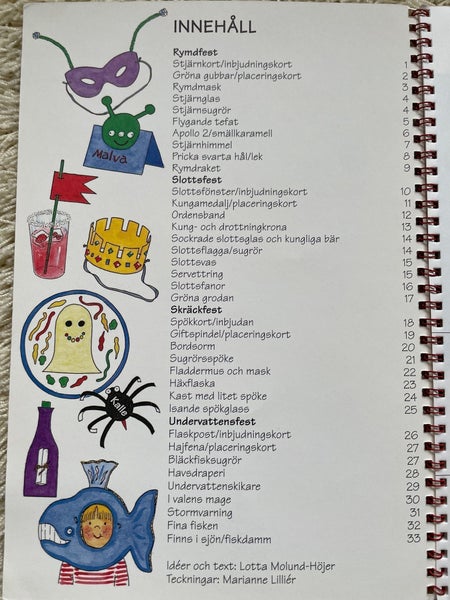 INNEHÅLL
Rymdfest
Stjärnkort/inbjudningskort 1
Gröna gubbar/placeringskort 2
Rymdmask 3
Stjärnglas 4
Stjärnsugrör 4
Flygande tefat 5
Apollo 2/smällkaramell 6
Stjärnhimmel 7
Pricka svarta hål/lek 8
Rymdraket 9
Slottsfest
Slottsfönster/inbjudningskort 10
Kungamedalj/placeringskort 11
Ordensband 12
Kung- och drottningkrona 13
Sockrade slottsglas och kungliga bär 14
Slottsflagga/sugrör 14
Slottsvas 15
Servettring 15
Slottsfanor 16
Gröna grodan 17
Skräckfest
Spökkort/inbjudan 18
Giftspindel/placeringskort 19
Bordsorm 20
Sugrörsspöke 21
Fladdermus och mask 22
Häxflaska 23
Kast med litet spöke 24
Isande spökglass 25
Undervattensfest
Flaskpost/inbjudningskort 26
Hajfena/placeringskort 27
Bläckfisksugrör 27
Havsdraperi 28
Undervattenskikare 29
I valens mage 30
Stormvarning 31
Fina fisken 32
Finns i sjön/fiskdamm 33
Idéer och text: Lotta Molund-Höjer
Teckningar: Marianne Lilliér
Malva
Kalle